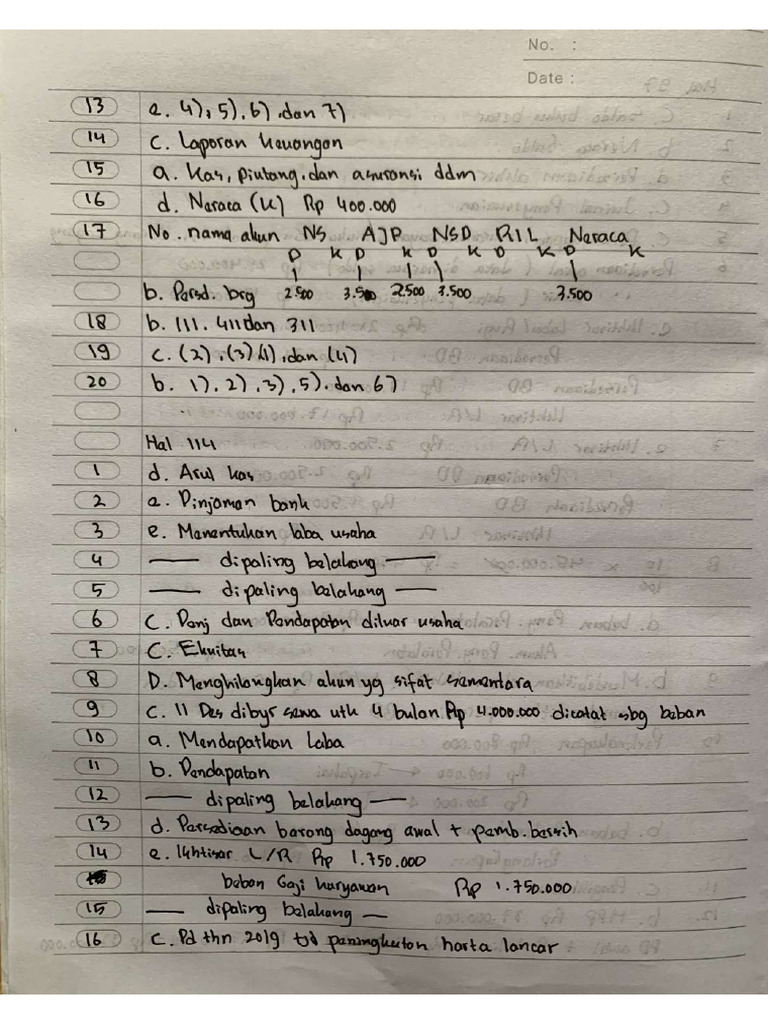 No. :
Date :
13 e. 4), 5), 6), dan 7)
14 c. Laporan keuangan
15 a. Kas, piutang, dan asuransi ddm
16 d. Neraca (K) Rp 400.000
17 No. nama akun NS AJP NSD R/L Neraca
D K D K D K D K D K
b. Persd. brg 2.500 3.500 2.500 3.500 3.500
18 b. 111. 411 dan 311
19 c. (2), (3) (1), dan (4)
20 b. 1), 2), 3), 5), dan 6)
Hal 114
1 d. Arus kas
2 e. Pinjaman bank
3 e. Menentukan laba usaha
4 — dipaling belakang —
5 — dipaling belakang —
6 C. Penj dan Pendapatan diluar usaha
7 C. Ekuitas
8 D. Menghilangkan akun yg sifat sementara
9 C. 11 Des dibyr sewa utk 4 bulan Rp 4.000.000 dicatat sbg beban
10 a. Mendapatkan Laba
11 b. Pendapatan
12 — dipaling belakang —
13 d. Persediaan barang dagang awal + pemb. bersih
14 e. Ikhtisar L/R Rp 1.750.000
beban Gaji karyawan Rp 1.750.000
15 — dipaling belakang —
16 C. Pd thn 2019 tjd peningkatan harta lancar